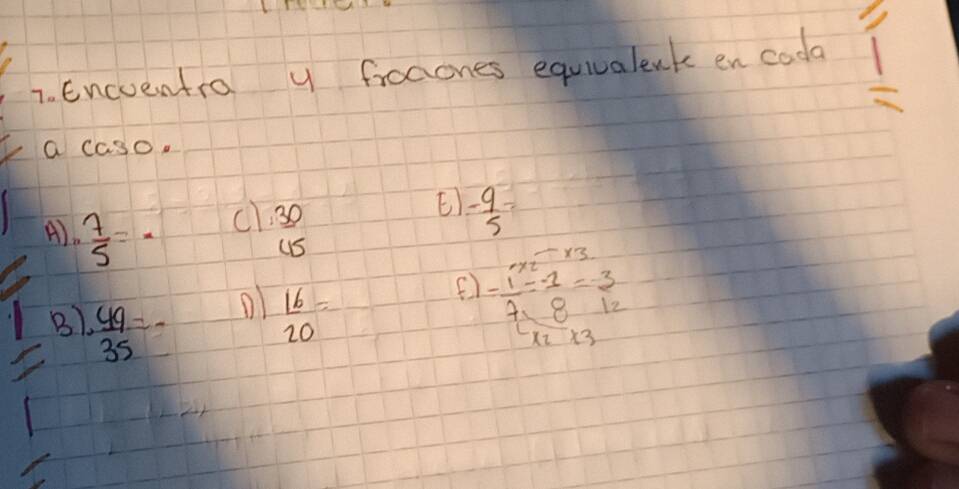 7. Encuentra 4 fracciones equivalente en cada
a caso.
A). 7/5 = - C). 30/45 E) -9/5 =
x2 x3
B). 49/35 = - D) 16/20 = F.) -1/4 = -2/8 = -3/12
x2 x3